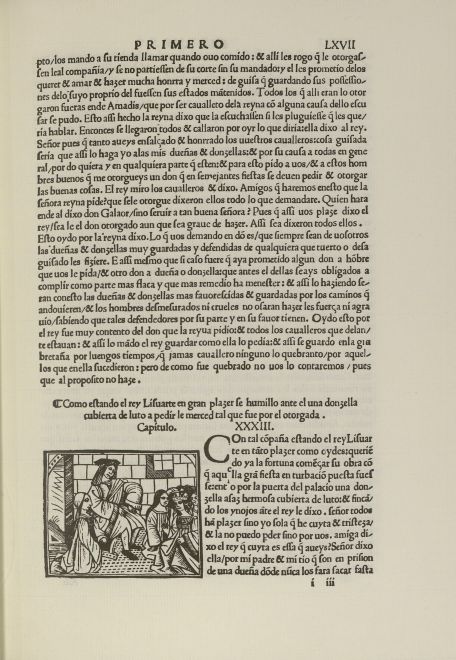 PRIMERO LXVII
pto/los mando a su tienda llamar quando ouo comido: & alli les rogo q̃ le otorgas-
sen leal compañia/y se no partiessen de su corte sin su mandado:y el les prometio delos
querer & amar & hazer mucha honrra y merced: de guisa q̃ guardando sus possessio-
nes delo suyo proprio del fuessen sus estados mãtenidos. Todos los q̃ alli eran lo otor
garon fueras ende Amadis/que por ser cauallero dela reyna cõ alguna causa dello escu
sar se pudo. Esto assi hecho la reyna dixo que la escuchassen si les pluguiesse q̃ les que/
ria hablar. Entonces se llegaron todos & callaron por oyr lo que diria:ella dixo al rey.
Señor pues q̃ tanto aueys ensalçado & honrrado los vuestros caualleros:cosa guisada
seria que assi lo haga yo alas mis dueñas & donzellas:& por su causa a todas en gene
ral/por do quiera y en qualquiera parte q̃ esten:& para esto pido a uos/& a estos hom
bres buenos q̃ me otorgueys un don q̃ en semejantes fiestas se deuen pedir & otorgar
las buenas cosas. El rey miro los caualleros & dixo. Amigos q̃ haremos enesto que la
señora reyna pide?que sele otorgue dixeron ellos todo lo que demandare. Quien hara
ende al dixo don Galaor/sino seruir a tan buena señora? Pues q̃ assi uos plaze dixo el
rey/sea le el don otorgado aun que sea graue de hazer. Assi sea dixeron todos ellos.
Esto oydo por la reyna dixo.Lo q̃ uos demando en dõ es/que siempre sean de uosotros
las dueñas & donzellas muy guardadas y defendidas de qualquiera que tuerto o desa
guisado les fiziere. E assi mesmo que si caso fuere q̃ aya prometido algun don a hõbre
que uos le pida/& otro don a dueña o donzella:que antes el dellas seays obligados a
complir como parte mas flaca y que mas remedio ha menester: & assi lo haziendo se-
ran conesto las dueñas & donzellas mas fauorescidas & guardadas por los caminos q̃
andouieren/& los hombres desmesurados ni crueles no osaran hazer les fuerça ni agra
uio/sabiendo que tales defendedores por su parte y en su fauor tienen. Oydo esto por
el rey fue muy contento del don que la reyna pidio:& todos los caualleros que delan/
te estauan: & assi lo mãdo el rey guardar como ella lo pedia:& assi se guardo enla grã
bretaña por luengos tiempos/q̃ jamas cauallero ninguno lo quebranto/por aquel-
los que enella sucedieron: pero de como fue quebrado no uos lo contaremos/pues
que al proposito no haze.
¶Como estando el rey Lisuarte en gran plazer se humillo ante el una donzella
cubierta de luto a pedir le merced tal que fue por el otorgada.
Capitulo. XXXIII.
COn tal cõpaña estando el rey Lisuar
te en tãto plazer como oydes:queriẽ
do ya la fortuna comẽçar su obra cõ
q̃ aqu lla grã fiesta en turbaciõ puesta fues
se:entro por la puerta del palacio una don-
zella asaz hermosa cubierta de luto:& fincã/
do los ynojos ãte el rey le dixo. señor todos
hã plazer sino yo sola q̃ he cuyta & tristeza/
& la no puedo pder sino por uos. amiga di-
xo el rey q̃ cuyta es essa q̃ aueys?Señor dixo
ella/por mi padre & mi tio q̃ son en prision
de una dueña dõde nũca los fara sacar fasta
i iii